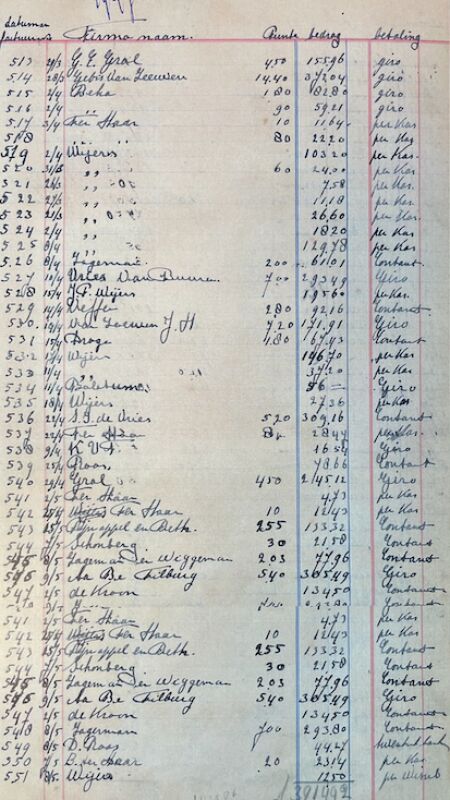 datum
factuurno firma naam. Punten bedrag betaling
513 28/3 G. E. Grol 450 155.96 giro
514 28/3 Gebr. van Leeuwen 14.40 372.04 giro
515 2/4 Beka 180 82.80 giro
516 2/4 " " 90 59.21 giro
517 3/4 Ter Haar 10 11.64 per Kas
518 " " 80 22.20 per Kas
519 2/4 Wijers 103.20 per Kas.
520 31/3 " " 60 24.00 per Kas.
521 26/3 " " 7.58 per Kas.
522 27/3 " " 11.18 per Kas.
523 21/3 " " 26.60 per Kas.
524 2/4 " " 18.20 per Kas.
525 8/4 " " 129.78 per Kas.
526 8/4 Jagerman 200 61.01 Contant.
527 10/4 Vries van Buuren 700 293.49 Giro
528 15/4 J. P. Wijers 195.60 per Kas.
529 14/4 280 92.16 Contant
530 19/4 van Leeuwen J. H 720 171.91 Giro
531 15/4 Droge 180 67.43 Contant
532 17/4 Wijers 146.70 per Kas
533 11/4 " " 37.20 per Kas
534 11/4 56 — Giro
535 18/4 Wijers 27.36 per Kas
536 22/4 S. I. de Vries 520 309.16 Contant
537 22/4 Ter Haar 80 28.47 per Kas.
538 9/4 K V T. 16.54 Giro
539 25/4 Roos 78.66 Contant
540 29/4 Grol 450 245.12 Giro
541 2/5 Ter Haar 4.73 per Kas
542 25/4 Wijers Ter Haar 10 12.43 per Kas
543 25/5 Pijnappel en Beth. 255 133.32 Contant
544 7/5 Schonberg 30 21.58 Contant
545 8/5 Jageman den Wiggeman 203 77.96 Contant
546 9/5 Aa Be Tilburg 540 305.49 Giro
547 2/5 de Kroon 134.50 Contant
541 2/5 Ter Haar 4.73 per Kas
542 25/4 Wijers Ter Haar 10 12.43 per Kas
543 25/5 Pijnappel en Beth. 255 133.32 Contant
544 7/5 Schonberg 30 21.58 Contant
545 8/5 Jageman den Wiggeman 203 77.96 Contant
546 9/5 Aa Be Tilburg 540 305.49 Giro
547 2/5 de Kroon 134.50 Contant
548 8/5 Jagerman 700 295.80 Contant
549 8/5 D. Groos 44.27
550 7/5 B. ter Haar 20 23.14 per Kas
551 8/5 Wijers 12.50 per Wissel